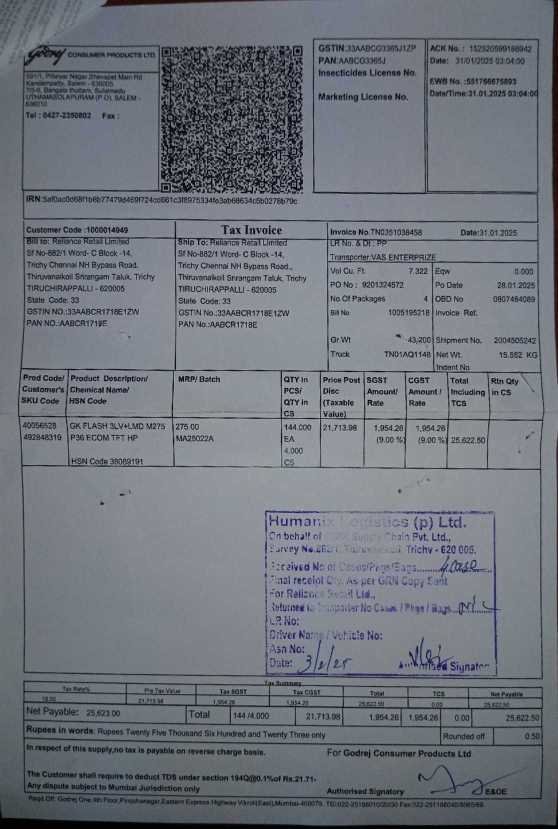 Godrej CONSUMER PRODUCTS LTD.
591/1, Pillaiyar Nagar Shevapet Main Rd
Kandampatty, Salem - 636005
7/5-6, Bangala thottam, Sullamedu
UTHAMASOLAPURAM (P.O), SALEM -
636010
Tel : 0427-2350802 Fax :
GSTIN:33AABCG3365J1ZP
PAN:AABCG3365J
Insecticides License No.
Marketing License No.
ACK No. : 152520599186942
Date: 31/01/2025 03:04:00
EWB No :581766675893
Date/Time:31.01.2025 03:04:00
Customer Code :1000014949
Bill to: Reliance Retail Limited
Sf No-882/1 Word- C Block -14,
Trichy Chennai NH Bypass Road,
Thiruvanaikoil Srirangam Taluk, Trichy
TIRUCHIRAPPALLI - 620005
State Code: 33
GSTIN NO.:33AABCR1718E1ZW
PAN NO.:AABCR1718E
Tax Invoice
Ship To: Reliance Retail Limited
Sf No-882/1 Word- C Block -14,
Trichy Chennai NH Bypass Road.,
Thiruvanaikoil Srirangam Taluk, Trichy
TIRUCHIRAPPALLI - 620005
State Code: 33
GSTIN NO.:33AABCR1718E1ZW
PAN No.:AABCR1718E
Invoice No.TN0351038458 Date:31.01.2025
LR No. & Dt : PP
Transporter:VAS ENTERPRIZE
Vol Cu. Ft. 7.322 Eqw 0.000
PO No : 9201324572 Po Date 28.01.2025
No Of Packages 4 OBD No 0807464089
Bill No 1005195218 Invoice Ref.
Gr.Wt 43,200 Shipment No. 2004505242
Truck TN01AQ1148 Net Wt. 15.552 KG
Indent No
Prod Code/ Customer's SKU Code
Product Description/ Chemical Name/ HSN Code
MRP/ Batch
QTY in PCS/ QTY in CS
Price Post Disc (Taxable Value)
SGST Amount/ Rate
CGST Amount / Rate
Total Including TCS
Rtn Qty in CS
40056528 GK FLASH 3LV+LMD M275 275.00 144.000 21,713.98 1,954.26 1,954.26
492848319 P36 ECOM TFT HP MA25022A EA (9.00 %) (9.00 %) 25,622.50
4.000
HSN Code 38089191 CS
Humanix Logistics (p) Ltd.
On behalf of Supply Chain Pvt. Ltd.,
Survey No.882/1, Trichy - 620 005.
Received No of Cases/Pkgs/Bags 4 case
Final receipt Qty. As per GRN Copy Sent
For Reliance Retail Ltd.,
Returned to Transporter No Cases / Pkgs / Bags
LR No:
Driver Name / Vehicle No:
Asn No:
Date: 3/2/25 Authorised Signatory
Tax Summary
Tax Rate% Pre Tax Value Tax SGST Tax CGST Total TCS Net Payable
18.00 21,713.98 1,954.26 1,954.26 25,622.50 0.00 25,622.50
Net Payable: 25,623.00 Total 144 /4.000 21,713.98 1,954.26 1,954.26 0.00 25,622.50
Rupees in words: Rupees Twenty Five Thousand Six Hundred and Twenty Three only Rounded off 0.50
In respect of this supply,no tax is payable on reverse charge basis.
For Godrej Consumer Products Ltd
The Customer shall require to deduct TDS under section 194Q@0.1%of Rs.21.71-
Any dispute subject to Mumbai Jurisdiction only
Authorised Signatory E&OE